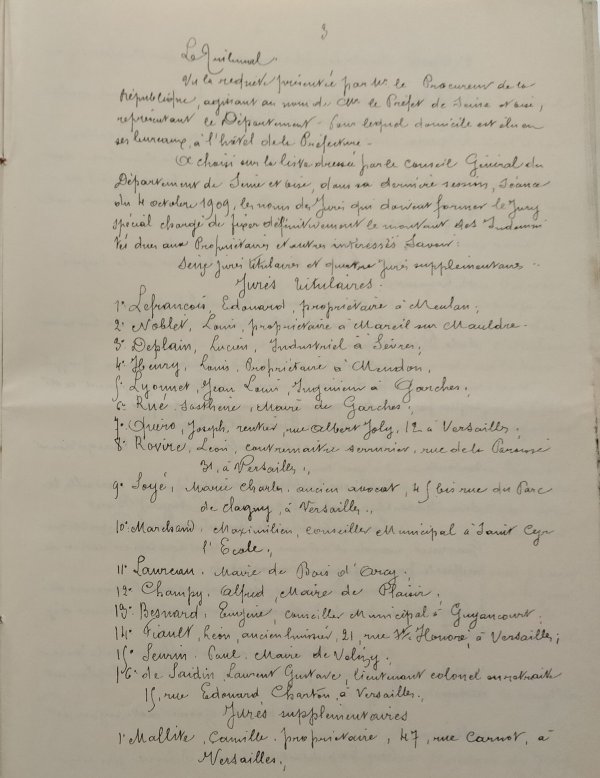 3
Le Tribunal.
Vu la requête présentée par Mr. le Procureur de la
République, agissant au nom de Mr. le Préfet de Seine et Oise,
représentant le Département - pour lequel domicile est élu en
ses bureaux, à l'hôtel de la Préfecture -
A choisi sur la liste dressée par le Conseil Général du
Département de Seine et Oise, dans sa dernière session, séance
du 4 octobre 1909, les noms des Jurés qui doivent former le Jury
spécial chargé de fixer définitivement le montant des Indemni
tés dues aux Propriétaires et autres intéressés Savoir:
Seize Jurés titulaires et quatre Jurés supplémentaires -
Jurés titulaires.
1º Lefrançois, Edouard, propriétaire à Meulan;
2º Noblet, Louis, propriétaire à Mareil sur Mauldre.
3º Deplain, Lucien, Industriel à Sèvres;
4º Henry, Louis, Propriétaire à Meudon,
5º Lyonnet, Jean Louis, Ingénieur à Garches;
6º Rué, Maire de Garches;
7º Joseph, rentier, rue Albert Joly, 12 à Versailles;
8º Rovire, Léon, contremaître serrurier, rue de la Paroisse
31, à Versailles;
9º Soyé, Marie Charles, ancien avocat, 45 bis rue du Parc
de Clagny, à Versailles;
10º Marchand, Maximilien, conseiller Municipal à Saint Cyr
l'Ecole;
11º Maire de Bois d'Arcy;
12º Champy, Alfred, Maire de Plaisir.
13º Besnard, Eugène, conseiller Municipal à Guyancourt;
14º Léon, ancien huissier, 21, rue St. Honoré, à Versailles;
15º Paul, Maire de Velizy.
16º de Laurent Gustave, lieutenant colonel en retraite
15, rue Edouard Charton, à Versailles;
Jurés supplémentaires
1º Mallite, Camille, propriétaire, 47, rue Carnot, à
Versailles;